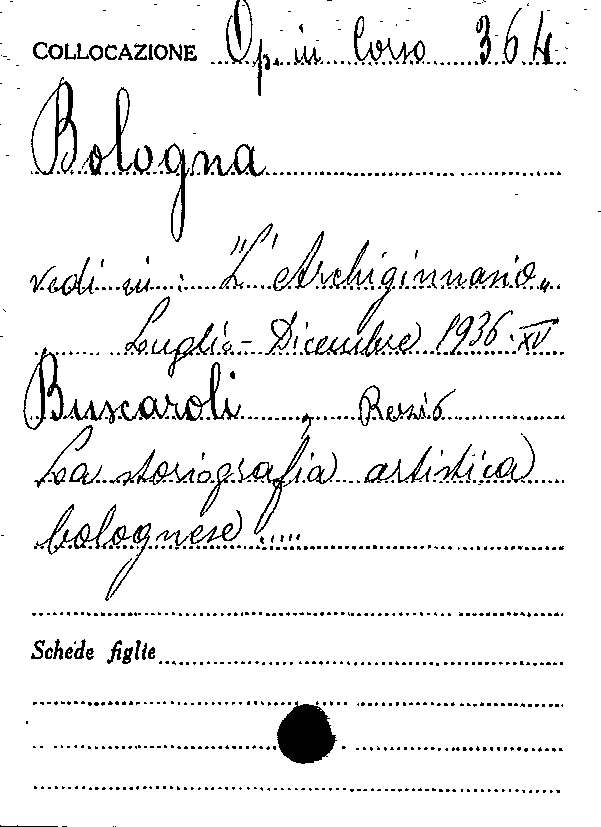 COLLOCAZIONE Op. in Corso 364
Bologna
vedi in : "L'Archiginnasio„
Luglio - Dicembre 1936. XV
Buscaroli , Rezio
La storiografia artistica
bolognese .....
Schede figlie